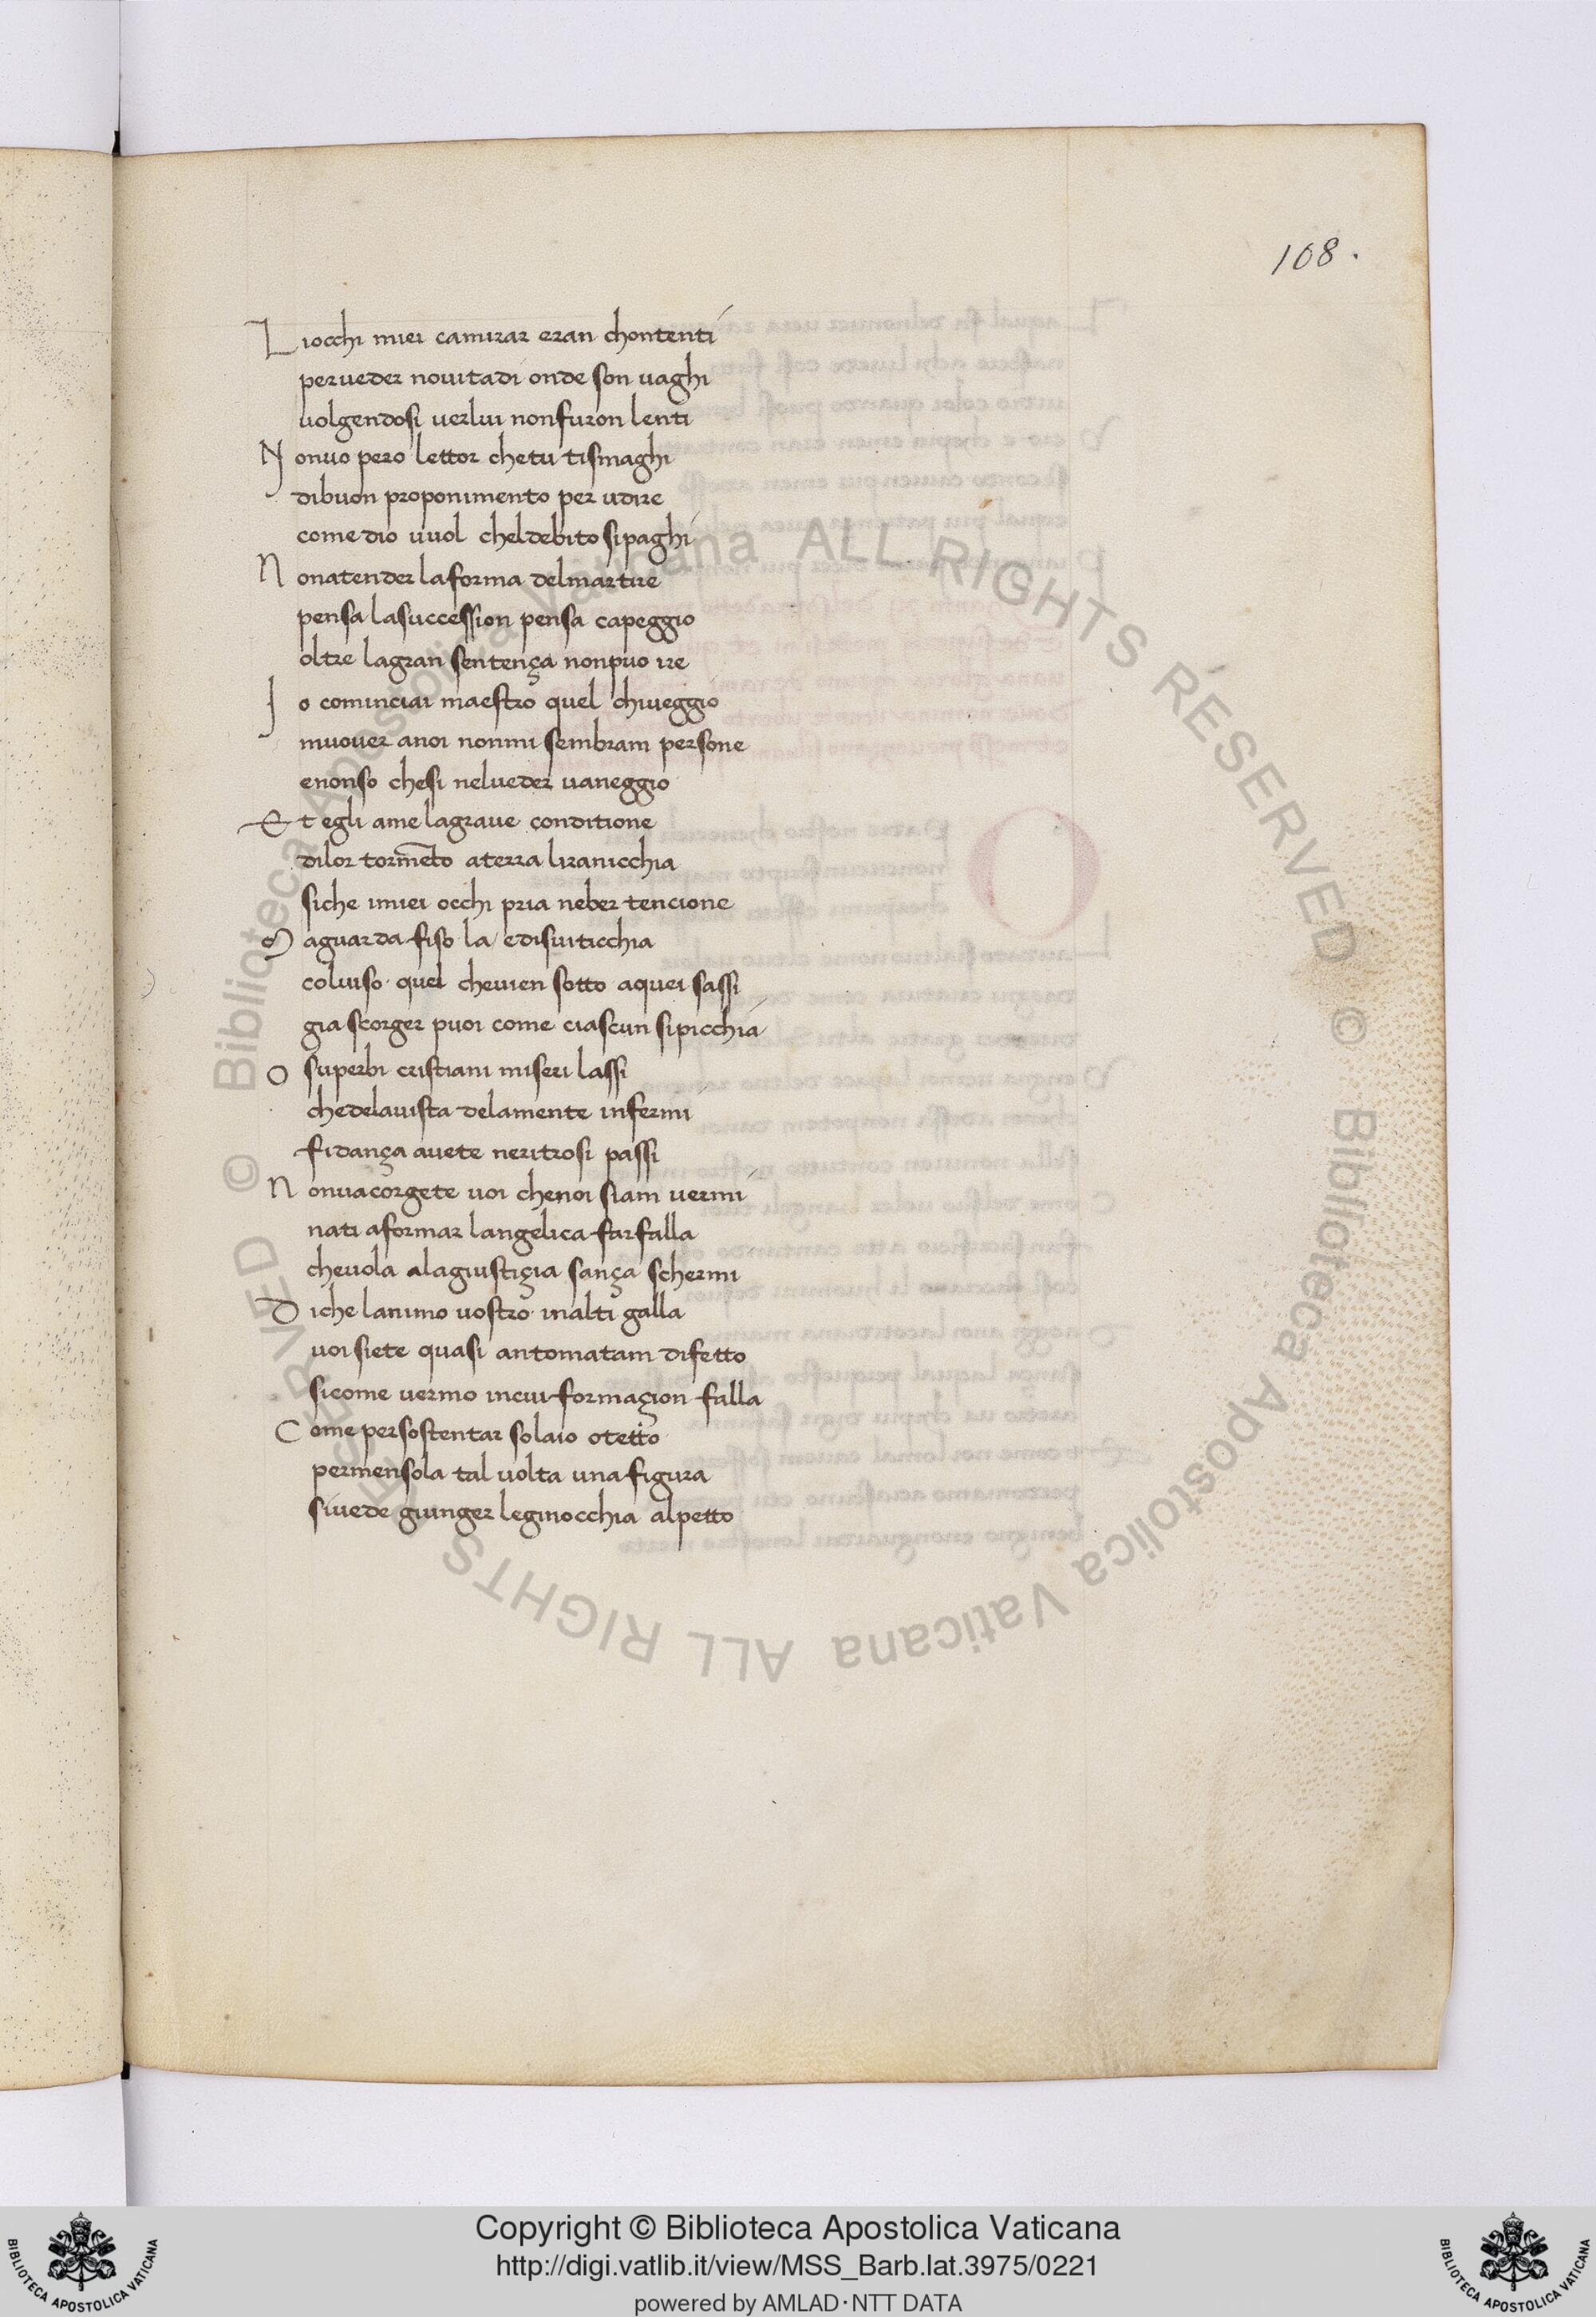 108.
L iocchi miei camirar eran chontenti
perueder nouitadi onde son uaghi
uolgendosi uerlui nonfuron lenti
N onuo pero lettor chetu tismaghi
dibuon proponimento per udire
come dio uuol cheldebito sipaghi
N onatender laforma delmartire
pensa lasuccession pensa capeggio
oltre lagran sentença nonpuo ire
I o cominciai maestro quel chiueggio
muouer anoi nonmi sembram persone
enonso chesi nelueder uaneggio
E t egli ame lagraue conditione
dilor torm̅eto aterra liranicchia
siche imiei occhi pria neber tencione
M aguarda fiso la edisuiticchia
coluiso quel cheuien sotto aquei sassi
gia scorger puoi come ciascun sipicchia
O superbi cristiani miseri lassi
chedelauista delamente infermi
fidança auete neritrosi passi
N onuacorgete uoi chenoi siam uermi
nati aformar langelica farfalla
cheuola alagiustiçia sança schermi
D iche lanimo uostro inalti galla
uoi siete quasi antomatam difetto
sicome uermo incui formaçion falla
C ome persostentar solaio otetto
permensola tal uolta una figura
siuede giunger leginocchia alpetto
© Biblioteca Apostolica Vaticana ALL RIGHTS RESERVED © Biblioteca Apostolica Vaticana ALL RIGHTS RESERVED
BIBLIOTECA APOSTOLICA VATICANA
Copyright © Biblioteca Apostolica Vaticana
http://digi.vatlib.it/view/MSS_Barb.lat.3975/0221
powered by AMLAD·NTT DATA
BIBLIOTECA APOSTOLICA VATICANA